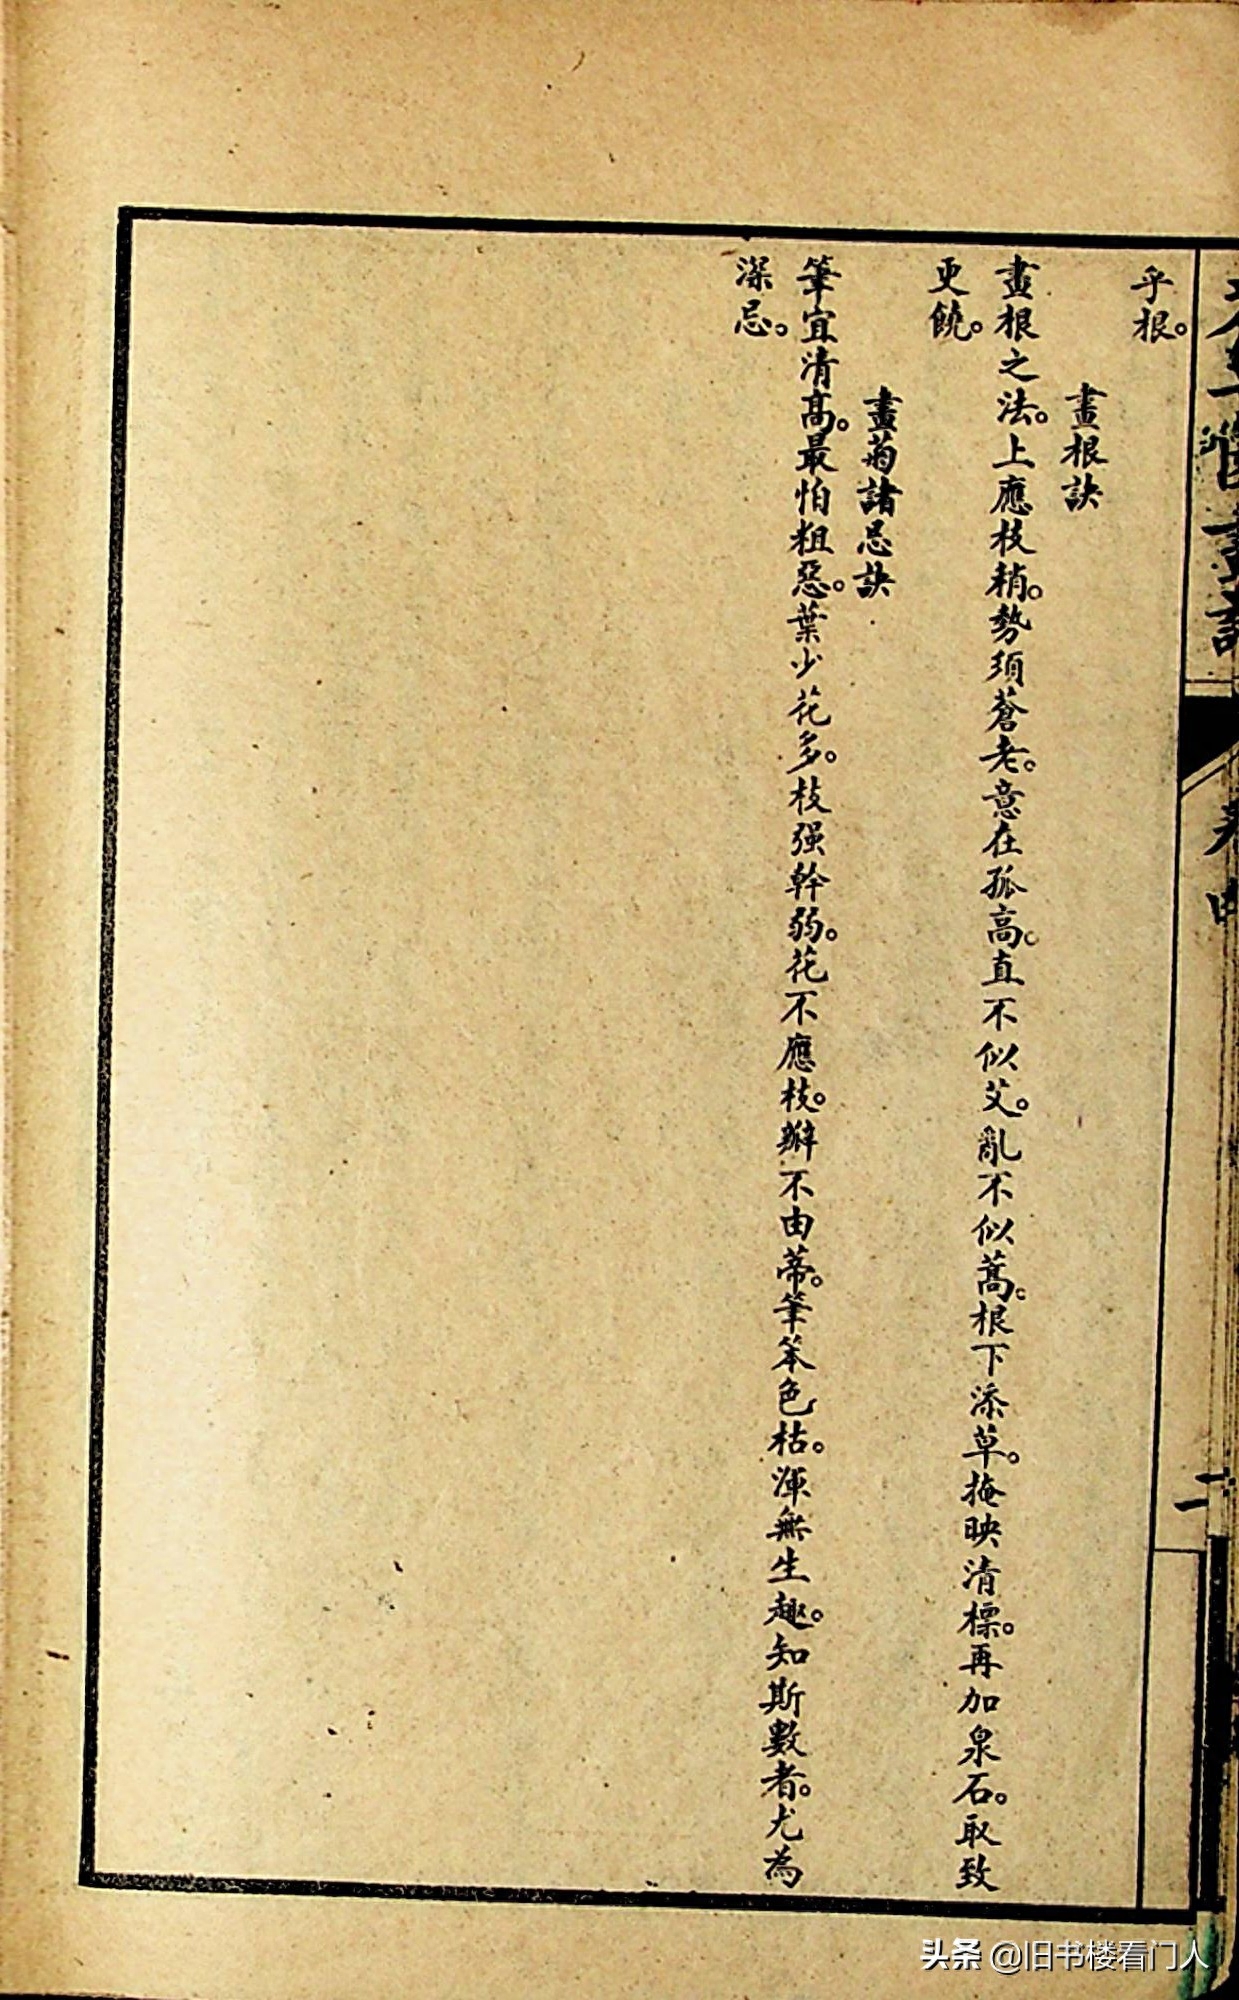 乎根。
畫根訣
畫根之法。上應枝稍。勢須蒼老。意在孤高。直不似艾。亂不似蒿。根下添草。掩映清標。再加泉石。取致
更饒。
畫菊諸忌訣
筆宜清高。最怕粗惡。葉少花多。枝强幹弱。花不應枝。瓣不由蒂。筆笨色枯。渾無生趣。知斯數者。尤為
深忌。
頭条 @旧书楼看门人